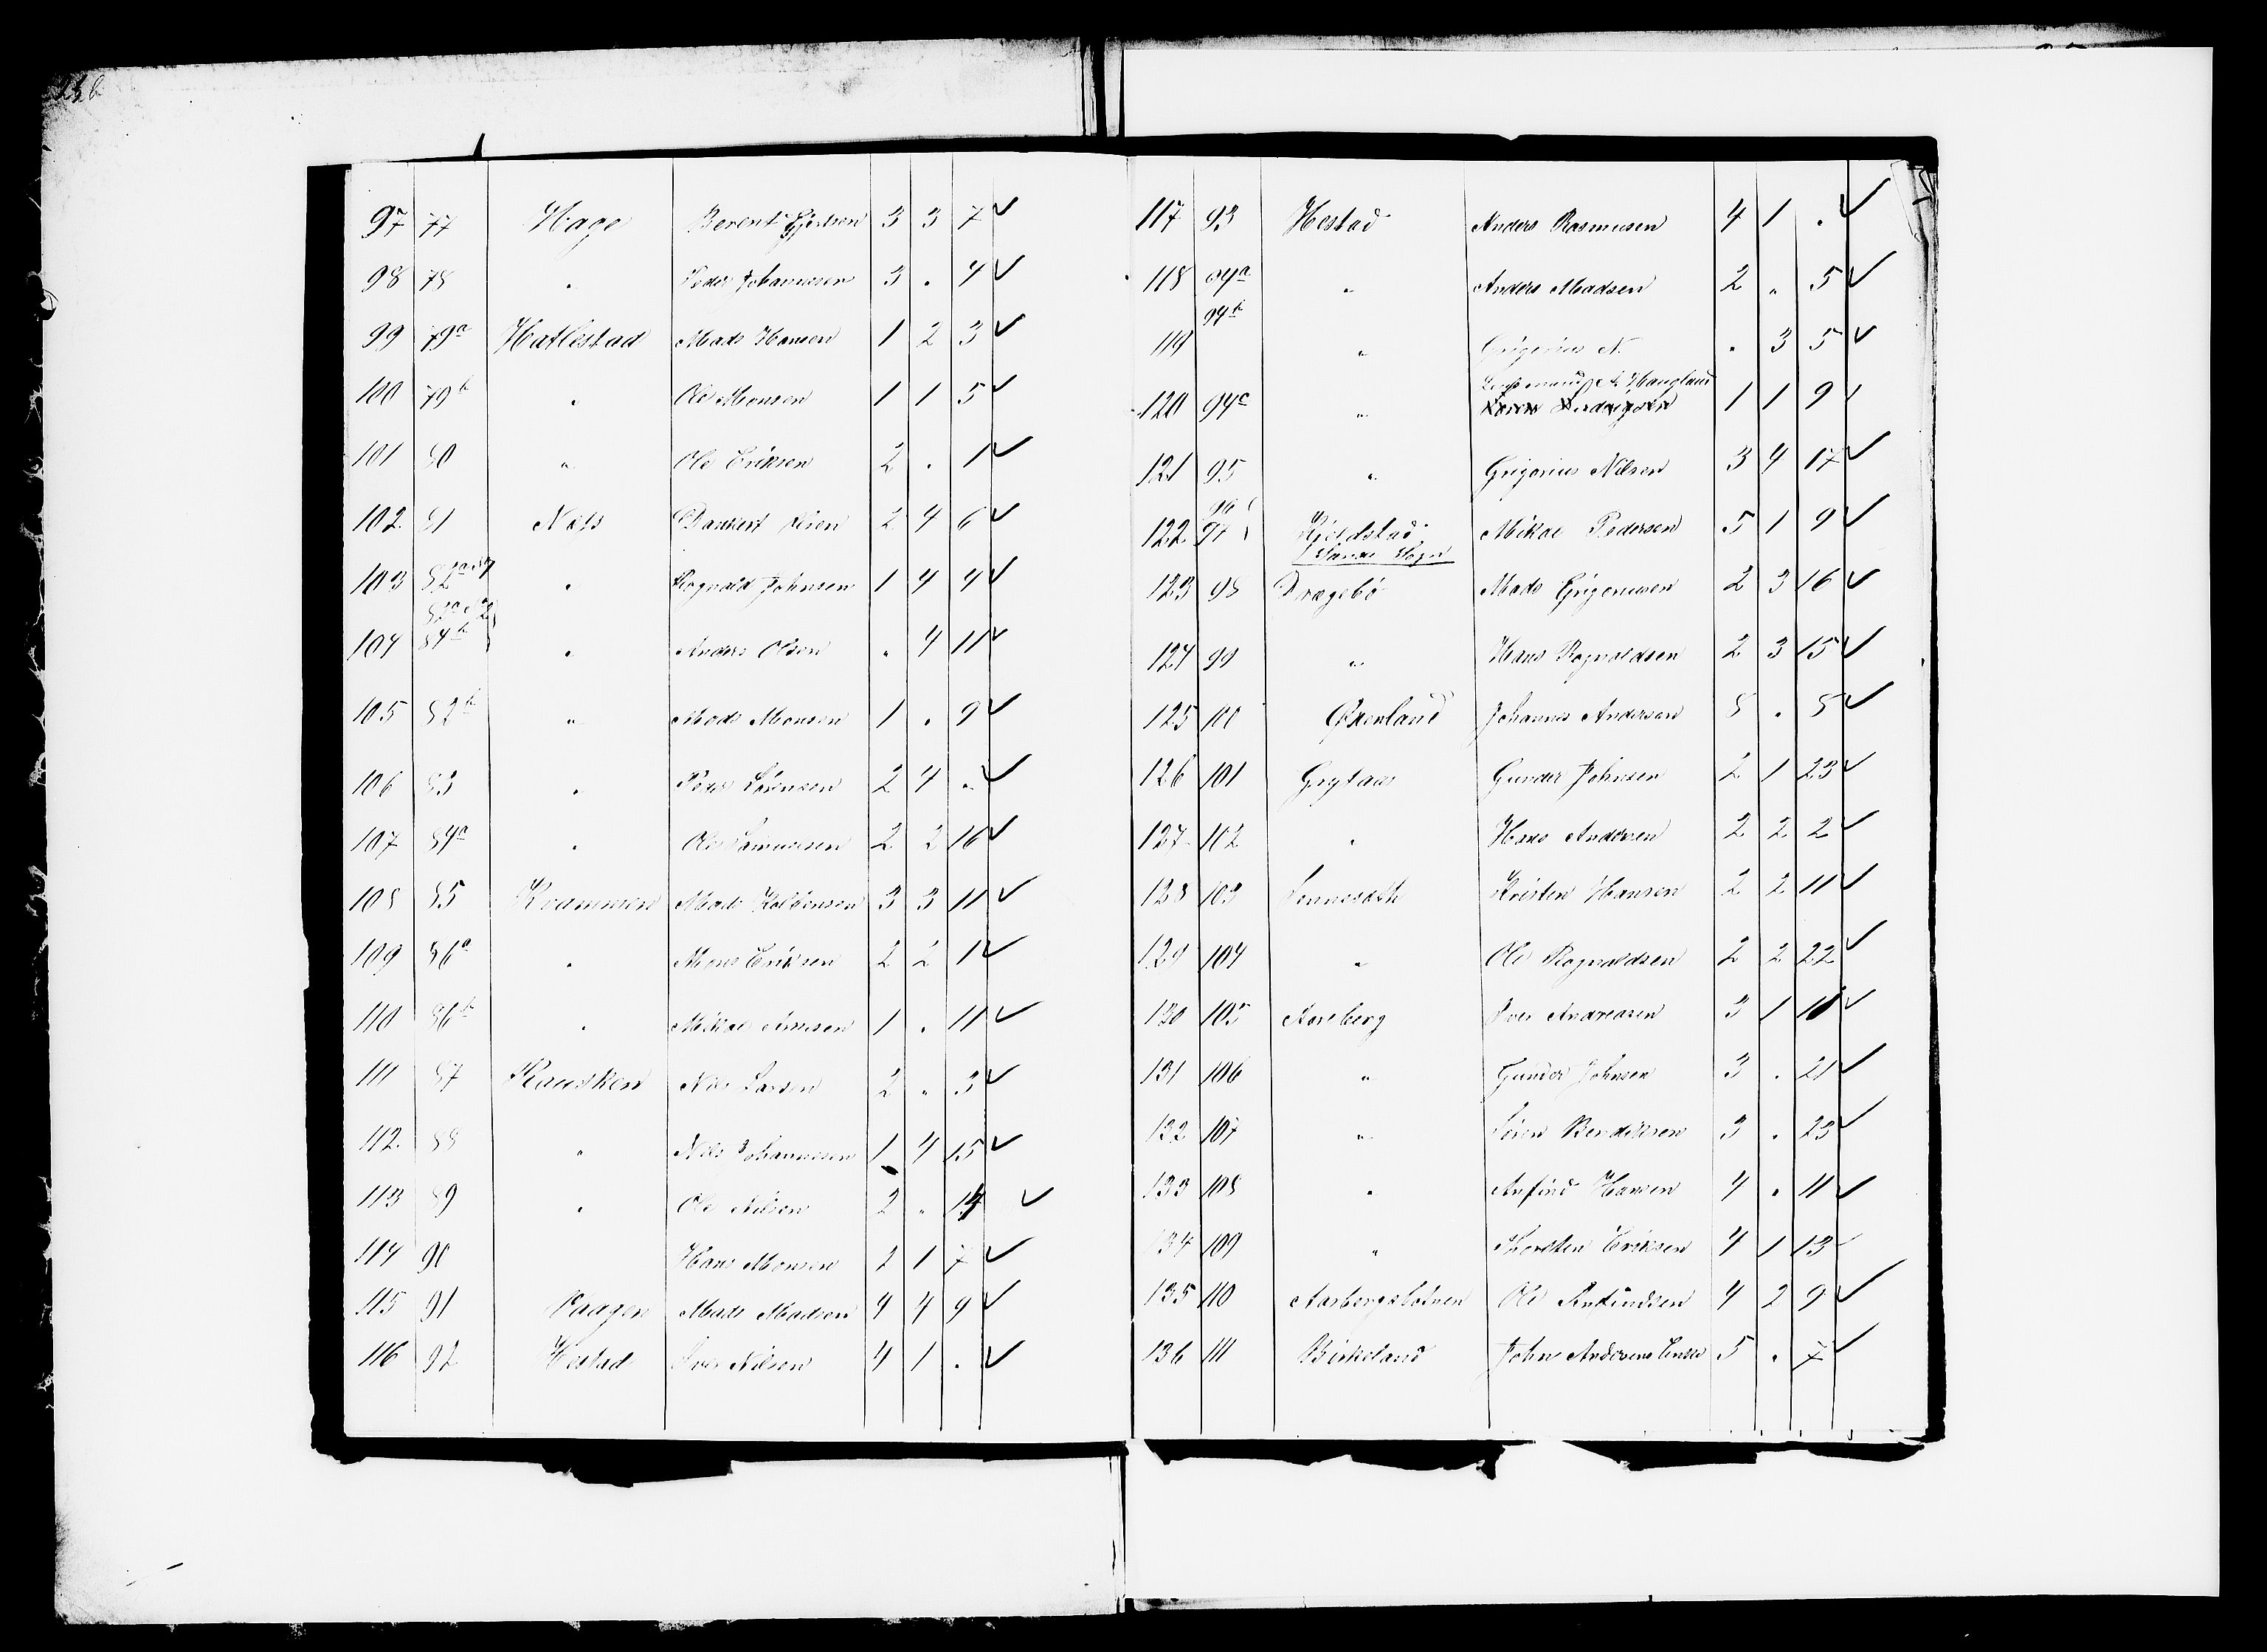 97 77 Hage Berent Gjertsen 3 3 7 ✓
98 78 " Peder Johannesen 3 . 4 ✓
99 79a Hatlestad Mads Hansen 1 2 3 ✓
100 79b " Ole Monsen 1 1 5 ✓
101 80 " Ole Eriksen 2 . 1 ✓
102. 81 Næs Dankert 2 4 6 ✓
103 82 " Rognald Johnsen 1 4 4 ✓
104 84b " Anders Olsen " 4 11 ✓
105 82b " Mads Monsen 1 . 9 ✓
106 83 " Peder Sörensen 2 4 " ✓
107 84a " Ole 2 2 16 ✓
108 85 Kvammen Mads Kolbensen 3 3 11 ✓
109 86a " Mons Eriksen 2 2 1 ✓
110 86b " Mikal 1 . 11 ✓
111 87 Rausken Nils Larsen 2 " 3 ✓
112. 88 " Nils Johannesen 1 4 15 ✓
113 89 " Ole Nilsen 2 " 14 ✓
114 90 Hans Monsen 2 1 7 ✓
115 91 Vaagen Mads Madsen 4 4 9 ✓
116 92 Hestad Iver Nilsen 4 1 . ✓
117 93 Hestad Anders Rasmusen 4 1 . ✓
118 94a " Anders Madsen 2 " 5 ✓
94b
119 " Grigorius N. " 3 5 ✓
A. Haugland
120 94c " 1 1 9
121 95 " Grigorius Nilsen 3 4 17 ✓
96
122 97 Kjeldstad Mikal Pedersen 5 1 9 ✓
Sogn
123 98 Drægebö Mads Grigoriusen 2 3 16 ✓
124 99 " Hans Rognaldsen 2 3 15 ✓
125 100 Øxenland Johannes Andersen 5 . 5 ✓
126 101 Grytaas Gunder Johnsen 2 1 23 ✓
127 102 " Hans Andersen 2 2 2 ✓
128 103 Kristen Hansen 2 2 11 ✓
129 104 " Ole Rognaldsen 2 2 22 ✓
130 105 Aarberg Iver Andreasen 3 1 10 ✓
131 106 " Gunder Johnsen 3 . 21 ✓
132 107 " Sören Bendiksen 3 . 23 ✓
133 108 " Anfind Hansen 4 . 11 ✓
134 109 " Thorsten Eriksen 4 1 13 ✓
135 110 Aarbergsbotnen Ole Anfindsen 4 2 9 ✓
136 111 Birkeland John Andersens Enke 5 . 7 ✓